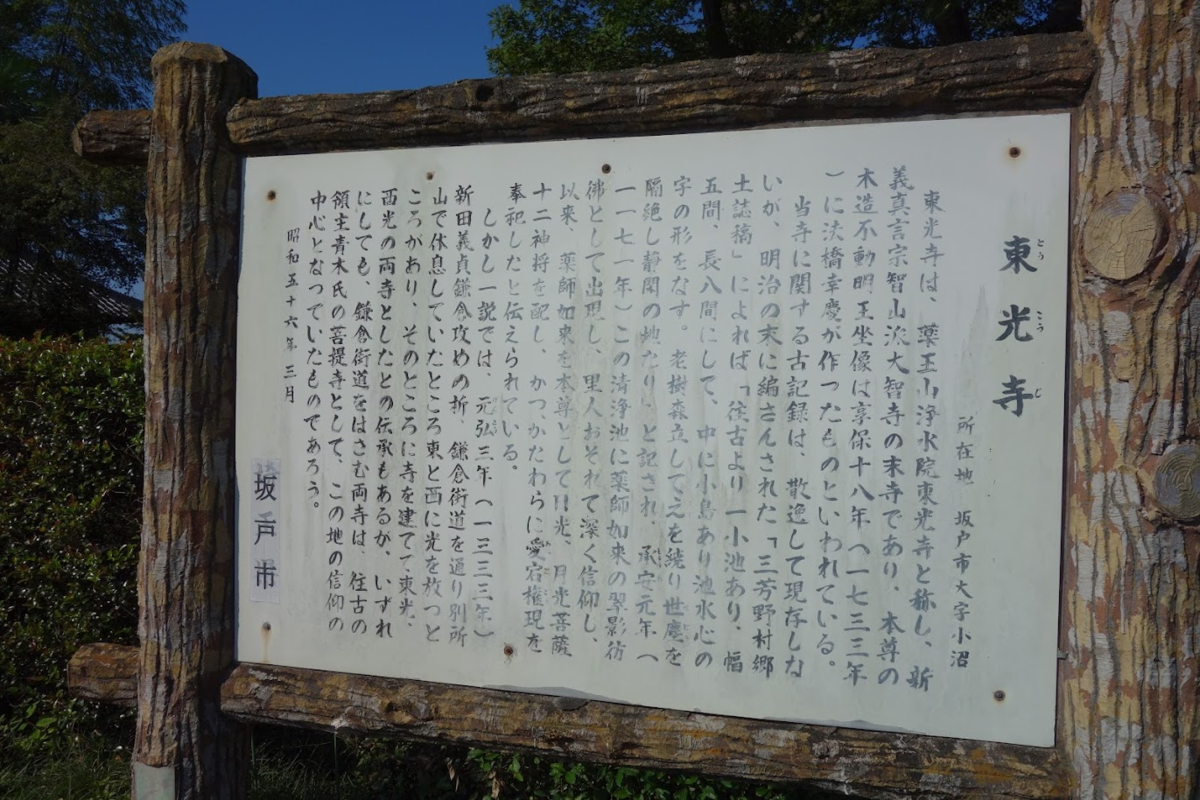 東光寺
とう こう じ
所在地 坂戸市大字小沼
東光寺は、薬王山浄水院東光寺と称し、新
義真言宗智山派大智寺の末寺であり、本尊の
木造不動明王坐像は享保十八年(一七三三年
)に法橋幸慶が作ったものといわれている。
当寺に関する古記録は、散逸して現存しな
いが、明治の末に編さんされた「三芳野村郷
土誌稿」によれば「往古より一小池あり、幅
五間、長八間にして、中に小島あり池水心の
字の形をなす。老樹森立してえを繞り世塵を
隔絶し静閑の地たり」と記され、承安元年(
一一七一年)この清浄池に薬師如来の翠影彷
彿として出現し、里人おそれて深く信仰し、
以来、薬師如来を本尊として日光、月光菩薩
十二神将を配し、かつ、かたわらに愛宕権現を
奉祀したと伝えられている。
しかし一説では、元弘三年(一三三三年)
新田義貞鎌倉攻めの折、鎌倉街道を通り別所
山で休息していたところ東と西に光を放つと
ころがあり、そのところに寺を建てて東光、
西光の両寺としたとの伝承もあるが、いずれ
にしても、鎌倉街道をはさむ両寺は、往古の
領主青木氏の菩提寺として、この地の信仰の
中心となっていたものであろう。
昭和五十六年三月
坂戸市